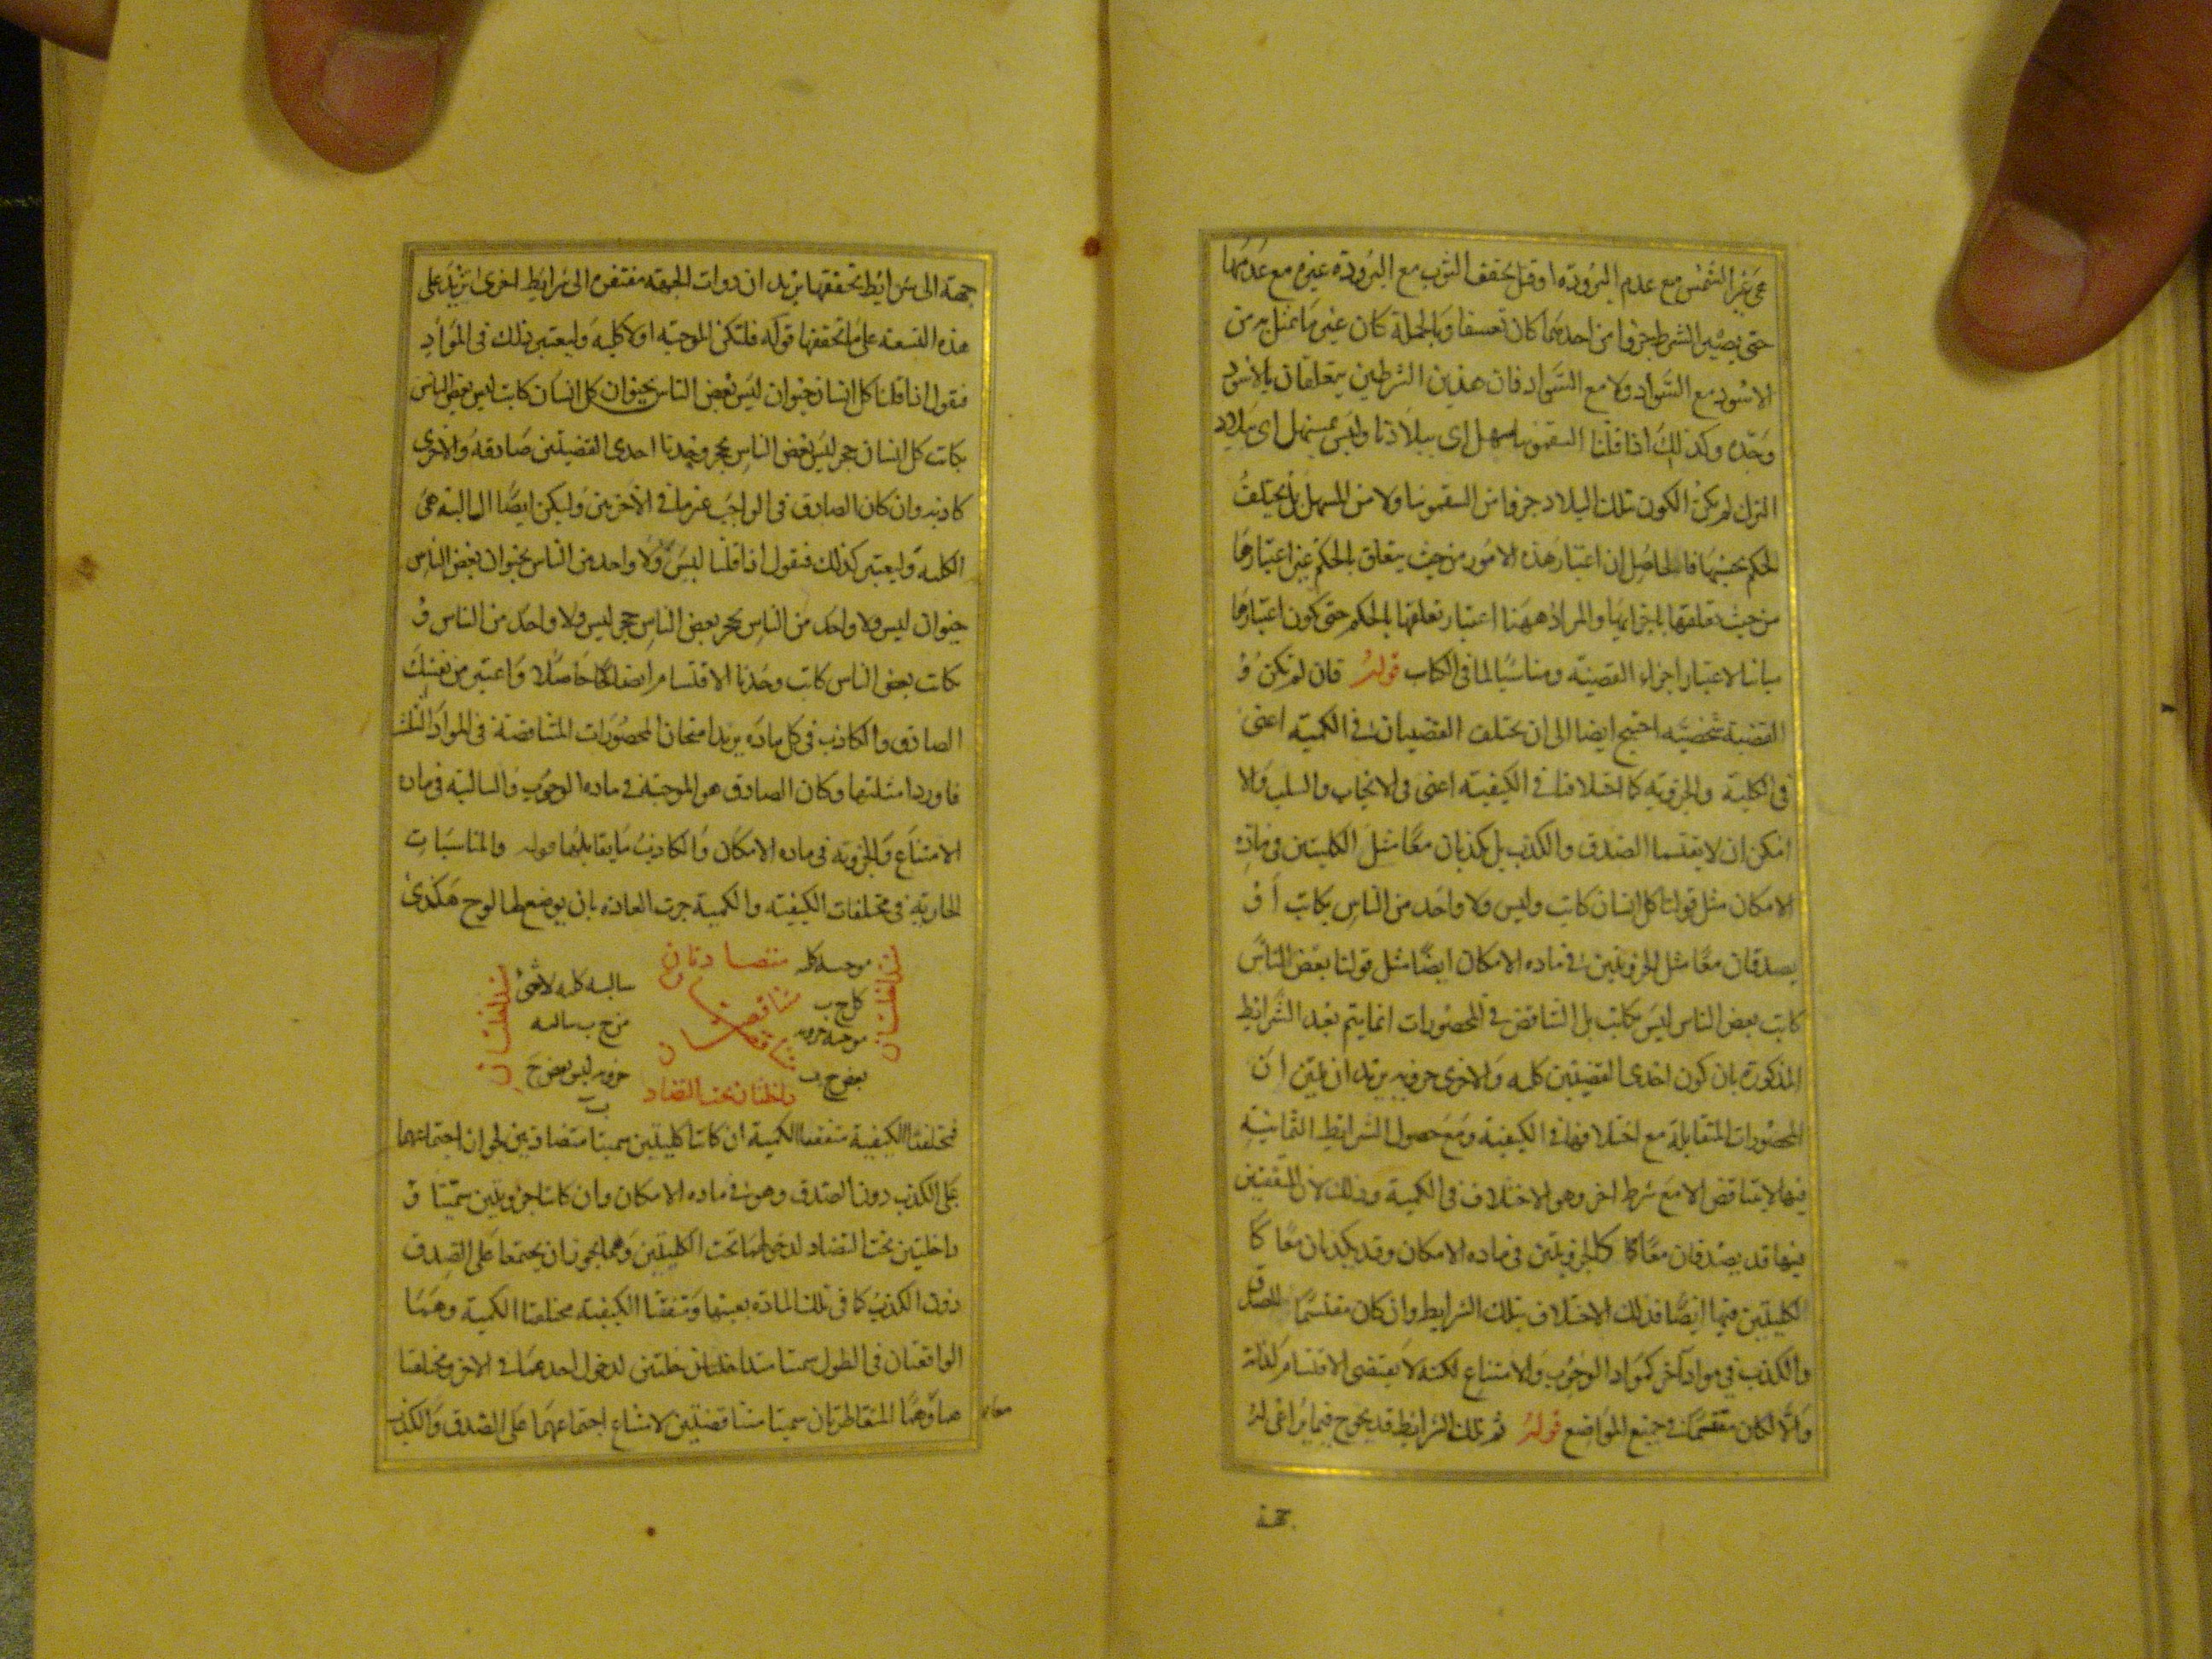 غير الشمس مع عدم البرودة او قيل يجفف الثوب مع البرودة غيره مع عدمها
حتى يصير الشرط جزوا من احدهما كان تعسفا وبالجملة كان غير ما تمثل به من
الاسود مع السواد ولا مع السواد فان هذين الشرطين يتعلقان بالاسود
وحده وكذلك اذا قلنا السقمونيا مسهل اى ببلادنا وليس بمسهل اى ببلاد
الترك لم يكن الكون بتلك البلاد جزوا من السقمونيا ولا من المسهل بل يختلف
الحكم بحسبها فالحاصل ان اعتبار هذه الامور من حيث يتعلق بالحكم غير اعتبارها
من حيث تعلقها باجزائها والمراد ههنا اعتبار تعلقها بالحكم حتى يكون اعتبارها
مباينا لاعتبار اجزاء القضية ومناسبا لما فى الكتاب قوله فان لم تكن
القضية شخصية احتيج ايضا الى ان يختلف القضيتان فى الكمية اعنى
فى الكلية والجزوية كما اختلافا فى الكيفية اعنى فى الايجاب والسلب والا
امكن ان لا يقتسما الصدق والكذب بل يكذبان معا مثل الكليتين فى مادة
الامكان مثل قولنا كل انسان كاتب وليس ولا واحد من الناس بكاتب او
يصدقان معا مثل الجزويتين فى ماده الامكان ايضا مثل قولنا بعض الناس
كاتب بعض الناس ليس بكاتب بل التناقض فى المحصورات انما يتم بعد الشرايط
المذكورة بان يكون احدى القضيتين كليه والاخرى جزويه يريد ان يبين ان
المحصورات المتقابلة مع اختلافها فى الكيفية ومع حصول الشرايط الثمانية
فيها لا يتناقض الا مع شرط اخر وهو الاختلاف فى الكمية وذلك لان المتفقتين
فيها قد يصدقان معا كالجزويتين فى ماده الامكان وقد يكذبان معا كا
الكليتين فيها ايضا فذلك الاختلاف بتلك الشرايط وان كان مقتسما للصدق
والكذب فى مواد آخر كمواد الوجوب والامتناع لكنه لا يقتضى الاقتسام لذاته
والا لكان مقتسما فى جميع المواضع قوله ثم تلك الشرايط قد يحوج فيما يراعى له
جهة
جهة الى شرايط تحققها يريد ان ذوات الجهة مفتقره الى شرايط اخرى تزيد على
هذه التسعة على ما نحققها قوله فلتكن الموجبة اولا كلية وليعتبر ذلك فى المواد
فنقول اذا قلنا كل انسان حيوان ليس بعض الناس بحيوان كل انسان كاتب ليس بعض الناس
بكاتب كل انسان حجر ليس بعض الناس بحجر وجدنا احدى القضيتين صادقه والاخرى
كاذبه وان كان الصادق فى الواجب غير ما فى الاخرين وليكن ايضا السالبة هى
الكليه وليعتبر كذلك فنقول اذا قلنا ليس ولا واحد من الناس بحيوان بعض الناس
حيوان ليس ولا واحد من الناس بحجر بعض الناس حجر ليس ولا واحد من الناس
بكاتب بعض الناس كاتب وجدنا الاقتسام ايضا حاصلا واعتبر من نفسك
الصادق والكاذب فى كل مادة يريد امتحان المحصورات المتناقضة فى المواد الثلث
فاورد امثلتها وكان الصادق هو الموجبة فى ماده الوجوب والسالبة فى ماده
الامتناع والجزويه فى ماده الامكان والكاذب ما يقابلها قوله والمناسبات
الجارية فى مختلفات الكيفية والكمية جرت العادة بان يوضع لها لوح هكذى
متداخلتان موجبه كليه متضادتان سالبه كليه لا شئ متداخلتان
كل ج ب متناقضتان من ج ب سالبه
موجبه جزويه متناقضتان
بعض ج ب داخلتان تحت التضاد جزويه ليس بعض ج
ب
فمختلفتا الكيفية متفقتا الكمية ان كانتا كليتين سميتا متضادتين لجواز اجتماعهما
على الكذب دون الصدق وهو فى ماده الامكان وان كانتا جزويتين سميتا
داخلتين تحت التضاد لدخولهما تحت الكليتين وهما يجوز ان يجتمعا على الصدق
دون الكذب كما فى تلك المادة بعينها ومتفقتا الكيفية مختلفتا الكمية وهما
الواقعتان فى الطول سميتا متداخلتين لدخول احدهما فى الاخر ومختلفتا
هما وهما المتقاطرتان سميتا متناقضتين لامتناع اجتماعهما على الصدق والكذب